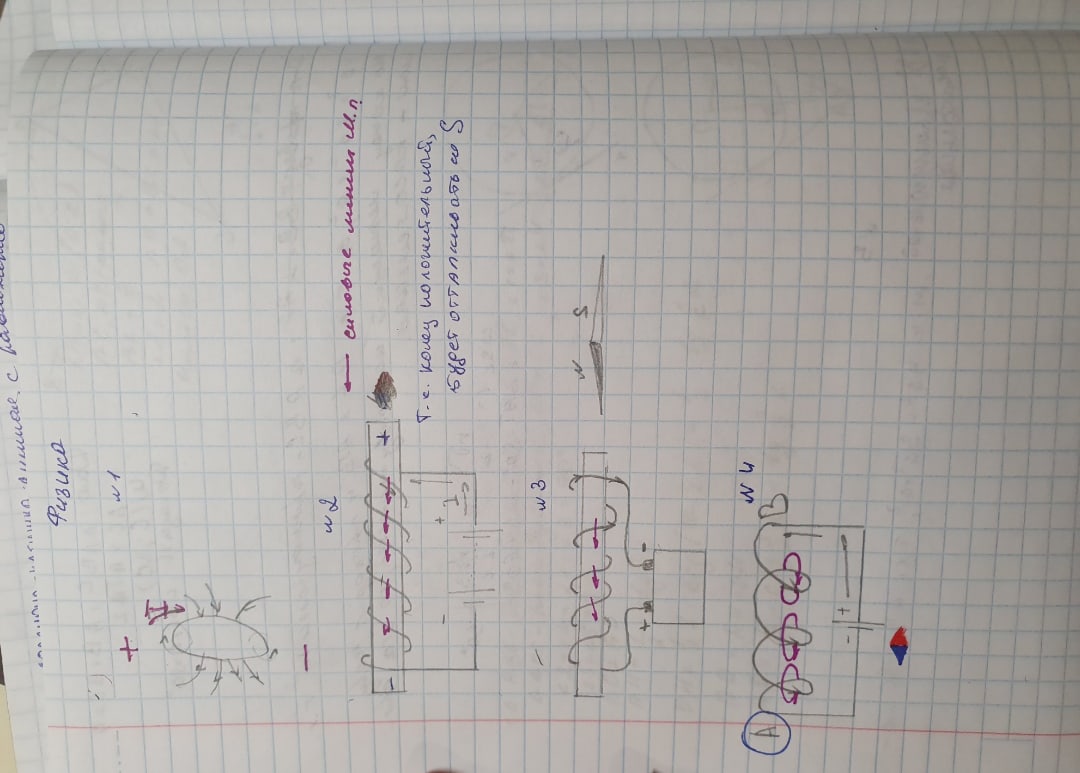 Физика
№1
+
I
−
№2
— силовые линии М.П.
- +
- + I
Т.к. конец положительный,
будет отталкивать со S
№3
N S
+ -
№4
A B
- +